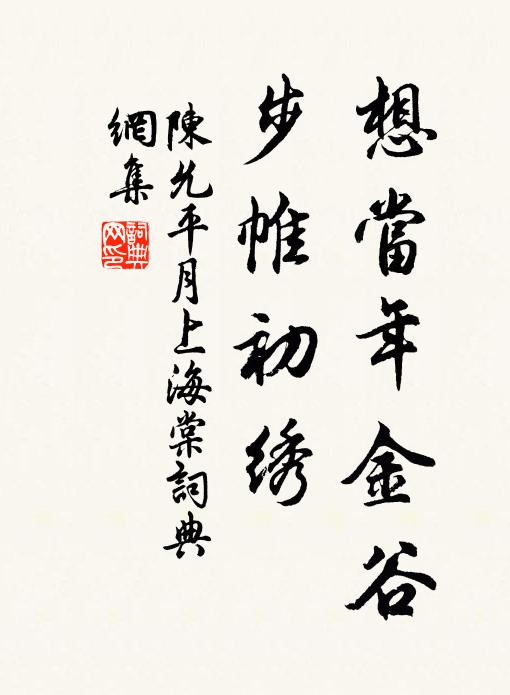 想當年金谷
步帷初绣
陳允平月上海棠詞典
網集
詞典
网印